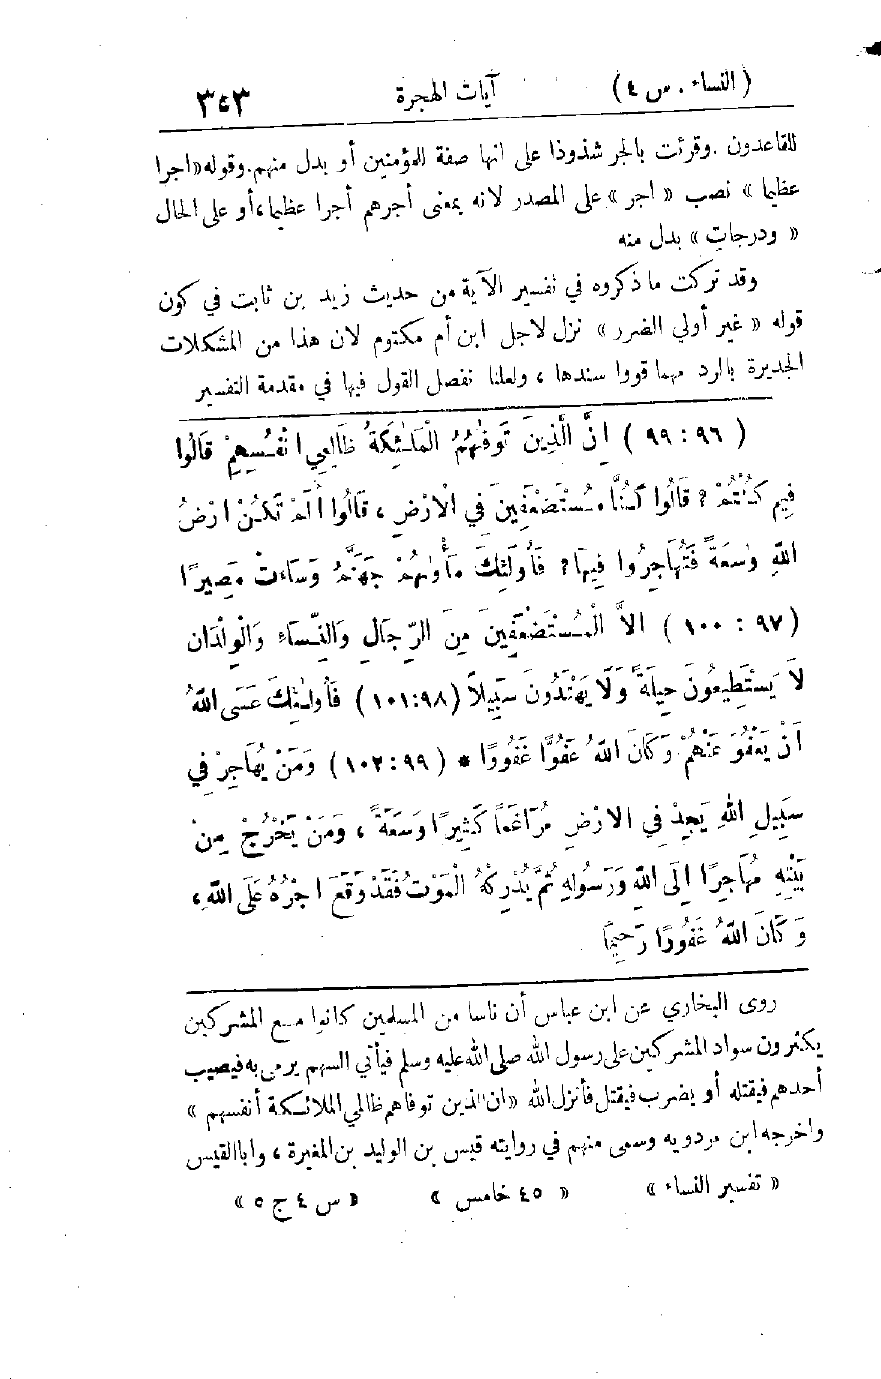 (النساء . س ٤) آيات الهجرة ٣٥٣
للقاعدون . وقرئت بالجر شذوذا على انها صفة للمؤمنين أو بدل منهم. وقوله «اجرا
عظيما » نصب « اجر » على المصدر لانه بمعنى أجرهم أجرا عظيما، أو على الحال
« ودرجات » بدل منه
وقد تركت ما ذكروه في تفسير الآية من حديث زيد بن ثابت في كون
قوله « غير أولي الضرر » نزل لاجل ابن أم مكتوم لان هذا من المشكلات
الجديرة بالرد مهما قووا سندها ، ولعلنا نفصل القول فيها في مقدمة التفسير
(٩٦ : ٩٩ ) إِنَّ الَّذِينَ تَوَفّٰهُمُ الْمَلٰئِكَةُ ظَالِمِي اَنْفُسِهِمْ قَالُوا
فِيمَ كُنْتُمْ ? قَالُوا كُنَّا مُسْتَضْعَفِينَ فِي الْاَرْضِ ، قَالُوا اَلَمْ تَكُنْ اَرْضُ
اللهِ وٰسِعَةً فَتُهَاجِرُوا فِيهَا ? فَأُولٰئِكَ مَأْوٰىهُمْ جَهَنَّمُ وَسَاءَتْ مَصِيرًا
(٩٧ : ١٠٠ ) الاَّ الْمُسْتَضْعَفِينَ مِنَ الرِّجَالِ وَالنِّسَاءِ وَالْوِلْدَانِ
لاَ يَسْتَطِيعُونَ حِيلَةً وَلَا يَهْتَدُونَ سَبِيلاً (٩٨:١٠١) فَأُولٰئِكَ عَسَى اللهُ
اَنْ يَعْفُوَ عَنْهُمْ وَكَانَ اللهُ عَفُوًّا غَفُورًا * (٩٩:١٠٢) وَمَنْ يُهَاجِرْ فِي
سَبِيلِ اللهِ يَجِدْ فِي الاَرْضِ مُرَاغَمًا كَثِيرًا وَسَعَةً ، وَمَنْ يَخْرُجْ مِنْ
بَيْتِهِ مُهَاجِرًا إِلَى اللهِ وَرَسُولِهِ ثُمَّ يُدْرِكْهُ الْمَوْتُ فَقَدْ وَقَعَ اَجْرُهُ عَلَى اللهِ ،
وَكَانَ اللهُ غَفُورًا رَحِيمًا
روى البخاري عن ابن عباس أن ناسا من المسلمين كانوا مع المشركين
يكثرون سواد المشركين على رسول الله صلى الله عليه وسلم فيأتي السهم يرمى به فيصيب
أحدهم فيقتله أو يضرب فيقتل فأنزل الله «ان الذين توفاهم الملائكة ظالمي أنفسهم »
واخرجه ابن مردويه وسمى منهم في روايته قيس بن الوليد بن المغيرة ، وابا القيس
« تفسير النساء » « ٤٥ خامس » « س ٤ ج ٥ »